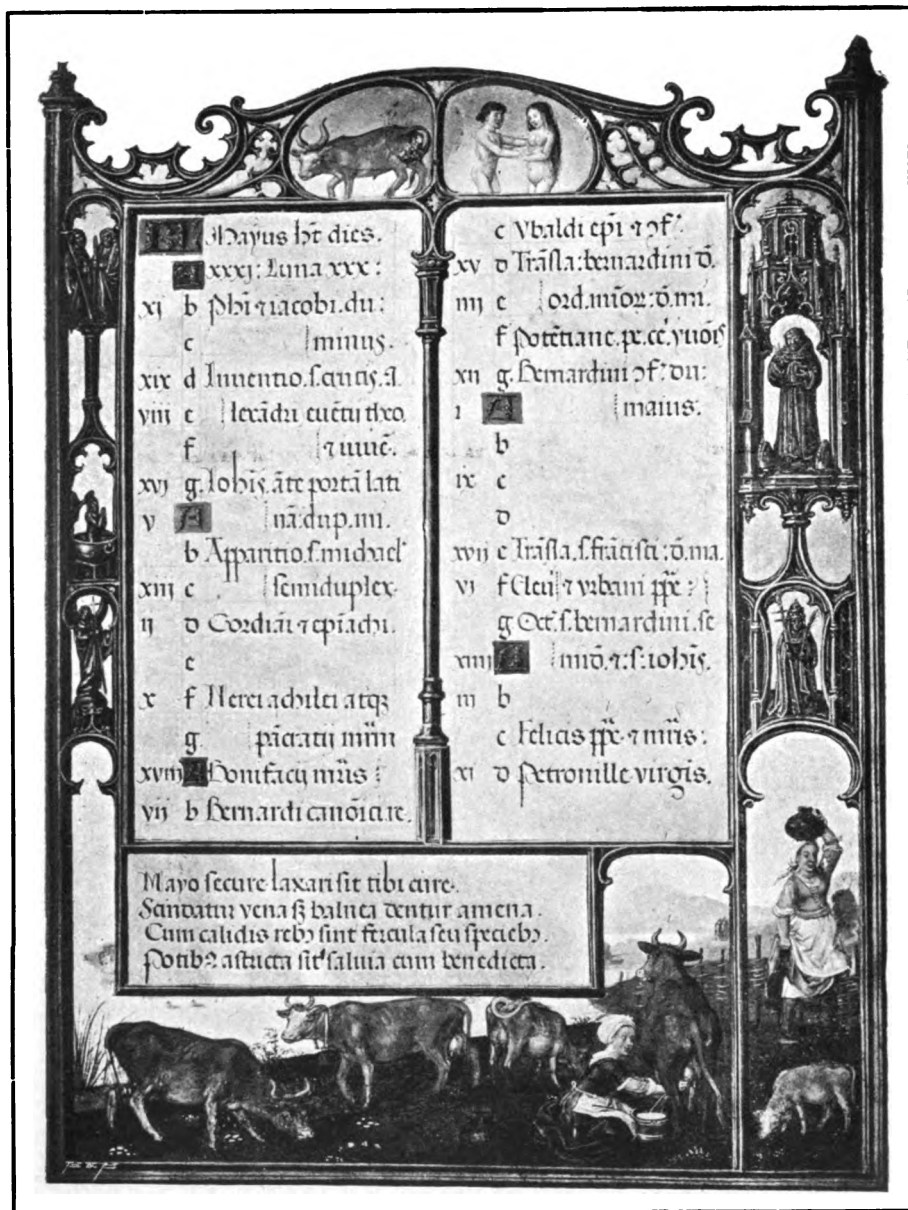 Mayus ht dies.
A xxxj: Luna xxx:
xj b Phi ⁊ iacobi. du:
c minus.
xix d Inventio. s. crucis. A
viij e lexadri
f ⁊ iuue.
xvj g. Iohis. ate porta lati
v A na: dup. mi.
b Apparitio. s. michael'
xiij c semiduplex.
ij d Gordiai ⁊ epiachi.
e
x f Nerei achilei atqz
g. pacratij
xviij A Bonifacij mris
vij b Bernardi canoici. re.
c Vbaldi epi ⁊ ɔf.
xv d Trasla: bernardini o.
iiij e ord. mior: d. mi.
f Potetiane.
xij g. Bernardini ɔf: du:
i A maius.
b
ix c
d
xvij e Trasla. s. fracisci: d. ma.
vj f Eleu ⁊ vrbani ppe:
g Oct. s. bernardini. se
xiiij A mid. ⁊: s: iohis.
iij b
c Felicis ppe ⁊ mris:
xj d Petronille virgis.
Mayo secure laxari sit tibi cure.
Scindatur vena sz balnea dentur amena.
Cum calidis rebz sint fercula seu speciebz.
Potibz astricta sit saluia cum benedicta.